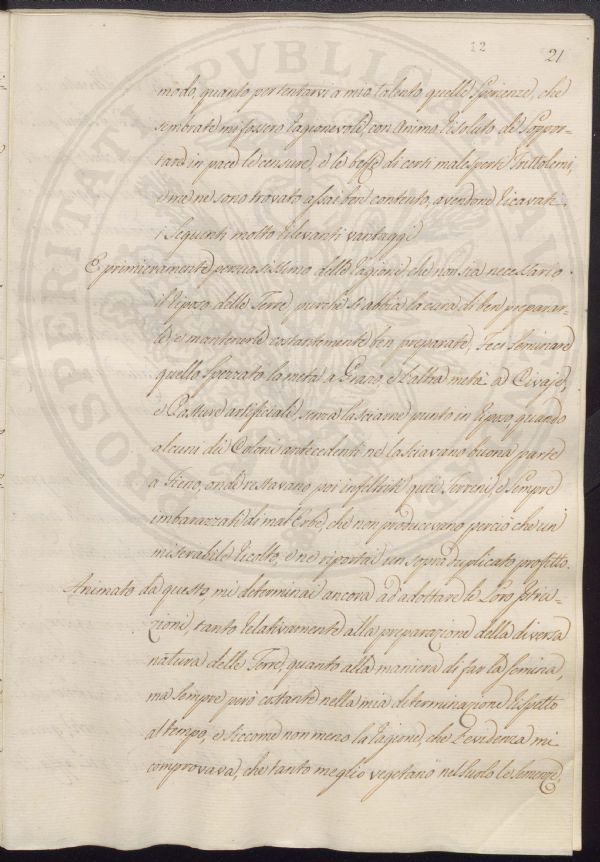 12
21
modo, quanto per tentarvi a mio talento quelle sperienze, che
sembrate mi fossero ragionevoli con animo risoluto de soppor-
tare in pace le censure, e le beffe di certi malesperti Trittolemi,
e me ne sono trovato assai ben contento, avendone ricavati
i seguenti molto rilevanti vantaggi
E primieramente persuasissimo delle ragioni che non sia necessario
il riposo delle Terre, purchè si abbia la cura di ben preparar-
le, e mantenerle costantemente ben preparate, feci seminare
quello spezzato la metà a Grano, e l'altra metà a Civaje,
e Pasture artificiali, senza lasciarne punto in riposo quando
alcuni dei Coloni antecedenti ne lasciavano buona parte
a fieno, onde restavano poi infeltriti quei Terreni, e sempre
imbarazzati di mal'Erbe, che non producevano perciò che un'
miserabile ricolto, e ne riportai un sopraduplicato profitto.
Animato da questo, mi determinai ancora ad adottare le Loro Istru-
zioni, tanto relativamente alla preparazione della diversa
natura delle Terre, quanto alla maniera di far la semina,
ma sempre però costante nella mia determinazione rispetto
al tempo, e siccome non meno la ragione, che l'evidenza mi
comprovava, che tanto meglio vegetano nel suolo le semenze,
PUBBLICA
PROSPERITATI